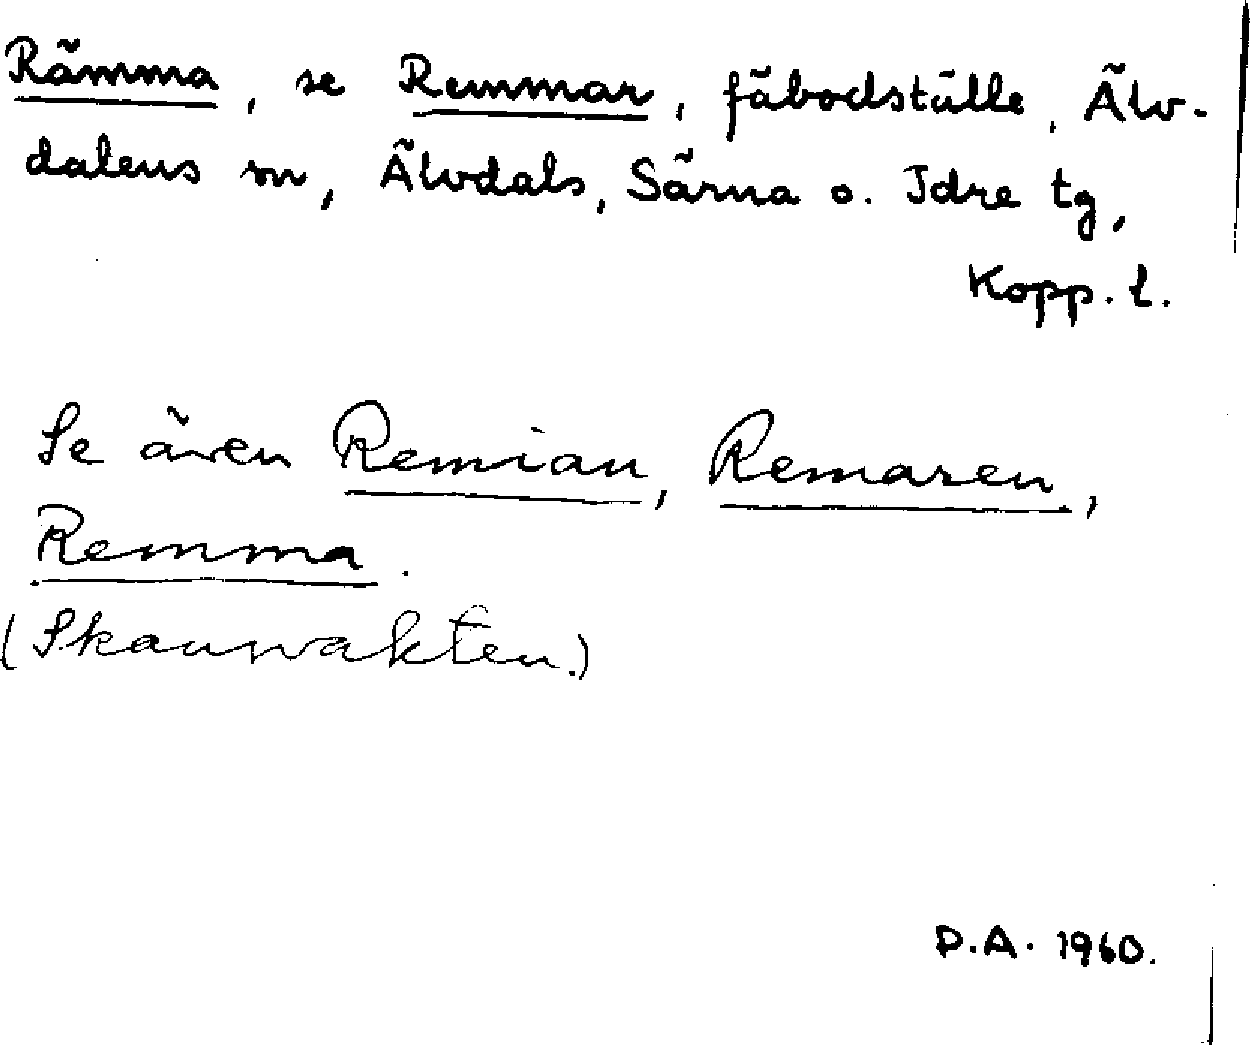 Rämma, se Remmar, fäbodställe, Älv-
dalens sn, Älvdals, Särna o. Idre tg,
Kopp. l.
Se även Remian, Remaren,
Remma.
(Skanvakten.)
D.A. 1960.